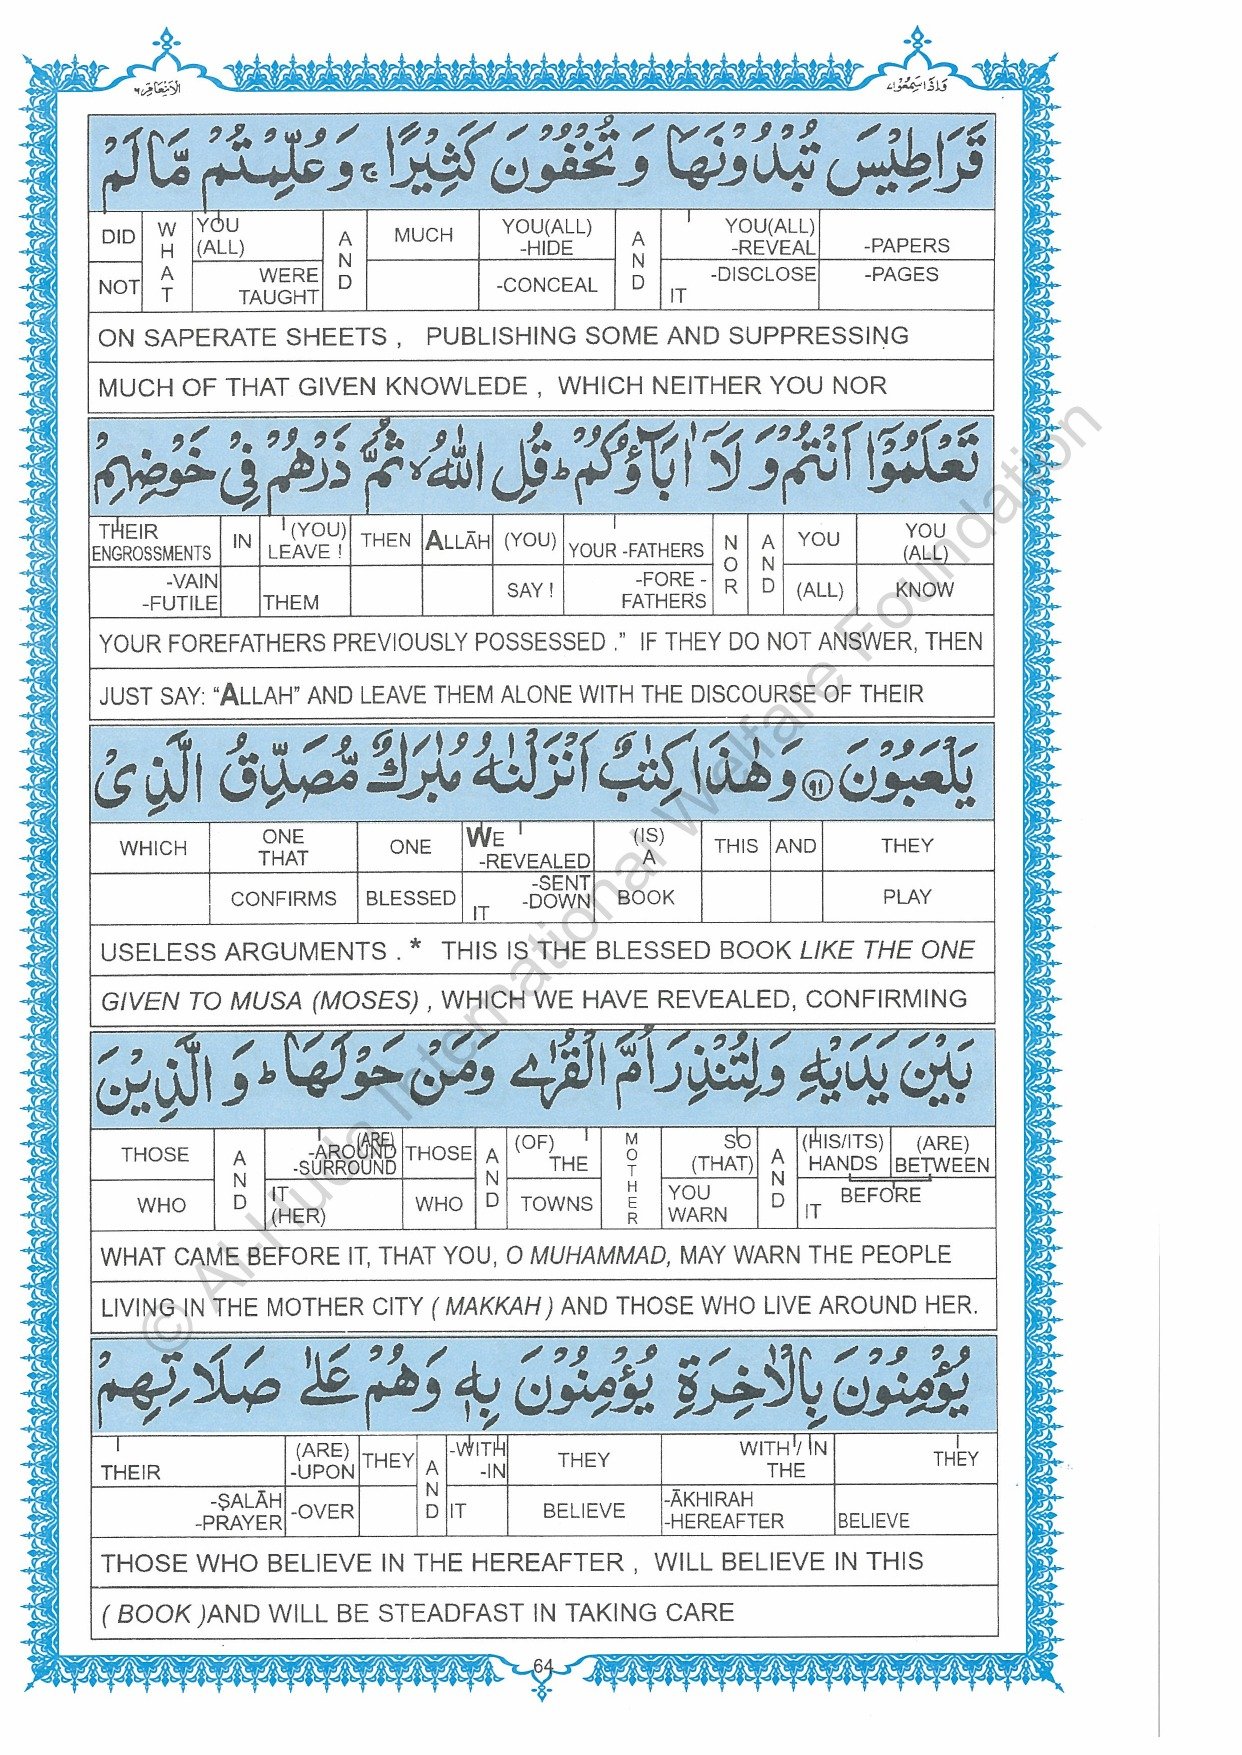 وَاِذَا سَمِعُوْا ٧
الْاَنْعَامِ ٦
قَرَاطِيْسَ تُبْدُوْنَهَا وَتُخْفُوْنَ كَثِيْرًا ۚ وَعُلِّمْتُمْ مَّا لَمْ
DID WHAT YOU (ALL) AND MUCH YOU(ALL) -HIDE AND YOU(ALL) -REVEAL -PAPERS
NOT WERE TAUGHT -CONCEAL IT -DISCLOSE -PAGES
ON SAPERATE SHEETS , PUBLISHING SOME AND SUPPRESSING
MUCH OF THAT GIVEN KNOWLEDE , WHICH NEITHER YOU NOR
تَعْلَمُوْٓا اَنْتُمْ وَلَآ اٰبَآؤُكُمْ ؕ قُلِ اللّٰهُ ۙ ثُمَّ ذَرْهُمْ فِيْ خَوْضِهِمْ
THEIR ENGROSSMENTS IN (YOU) LEAVE ! THEN ALLĀH (YOU) YOUR -FATHERS NOR AND YOU YOU (ALL)
-VAIN -FUTILE THEM SAY ! -FORE - FATHERS (ALL) KNOW
YOUR FOREFATHERS PREVIOUSLY POSSESSED .” IF THEY DO NOT ANSWER, THEN
JUST SAY: “ALLAH” AND LEAVE THEM ALONE WITH THE DISCOURSE OF THEIR
يَلْعَبُوْنَ ۹۱ وَهٰذَا كِتٰبٌ اَنْزَلْنٰهُ مُبٰرَكٌ مُّصَدِّقُ الَّذِيْ
WHICH ONE THAT ONE WE -REVEALED (IS) A THIS AND THEY
CONFIRMS BLESSED IT -SENT -DOWN BOOK PLAY
USELESS ARGUMENTS . * THIS IS THE BLESSED BOOK LIKE THE ONE
GIVEN TO MUSA (MOSES) , WHICH WE HAVE REVEALED, CONFIRMING
بَيْنَ يَدَيْهِ وَلِتُنْذِرَ اُمَّ الْقُرٰى وَمَنْ حَوْلَهَا ؕ وَالَّذِيْنَ
THOSE AND (ARE) -AROUND -SURROUND THOSE AND (OF) THE MOTHER SO (THAT) AND (HIS/ITS) HANDS (ARE) BETWEEN
WHO IT (HER) WHO TOWNS YOU WARN IT BEFORE
WHAT CAME BEFORE IT, THAT YOU, O MUHAMMAD, MAY WARN THE PEOPLE
LIVING IN THE MOTHER CITY ( MAKKAH ) AND THOSE WHO LIVE AROUND HER.
يُؤْمِنُوْنَ بِالْاٰخِرَةِ يُؤْمِنُوْنَ بِهٖ وَهُمْ عَلٰى صَلَاتِهِمْ
THEIR (ARE) -UPON THEY AND -WITH -IN THEY WITH / IN THE THEY
-ṢALĀH -PRAYER -OVER IT BELIEVE -ĀKHIRAH -HEREAFTER BELIEVE
THOSE WHO BELIEVE IN THE HEREAFTER , WILL BELIEVE IN THIS
( BOOK )AND WILL BE STEADFAST IN TAKING CARE
64
© Al-Huda International Welfare Foundation